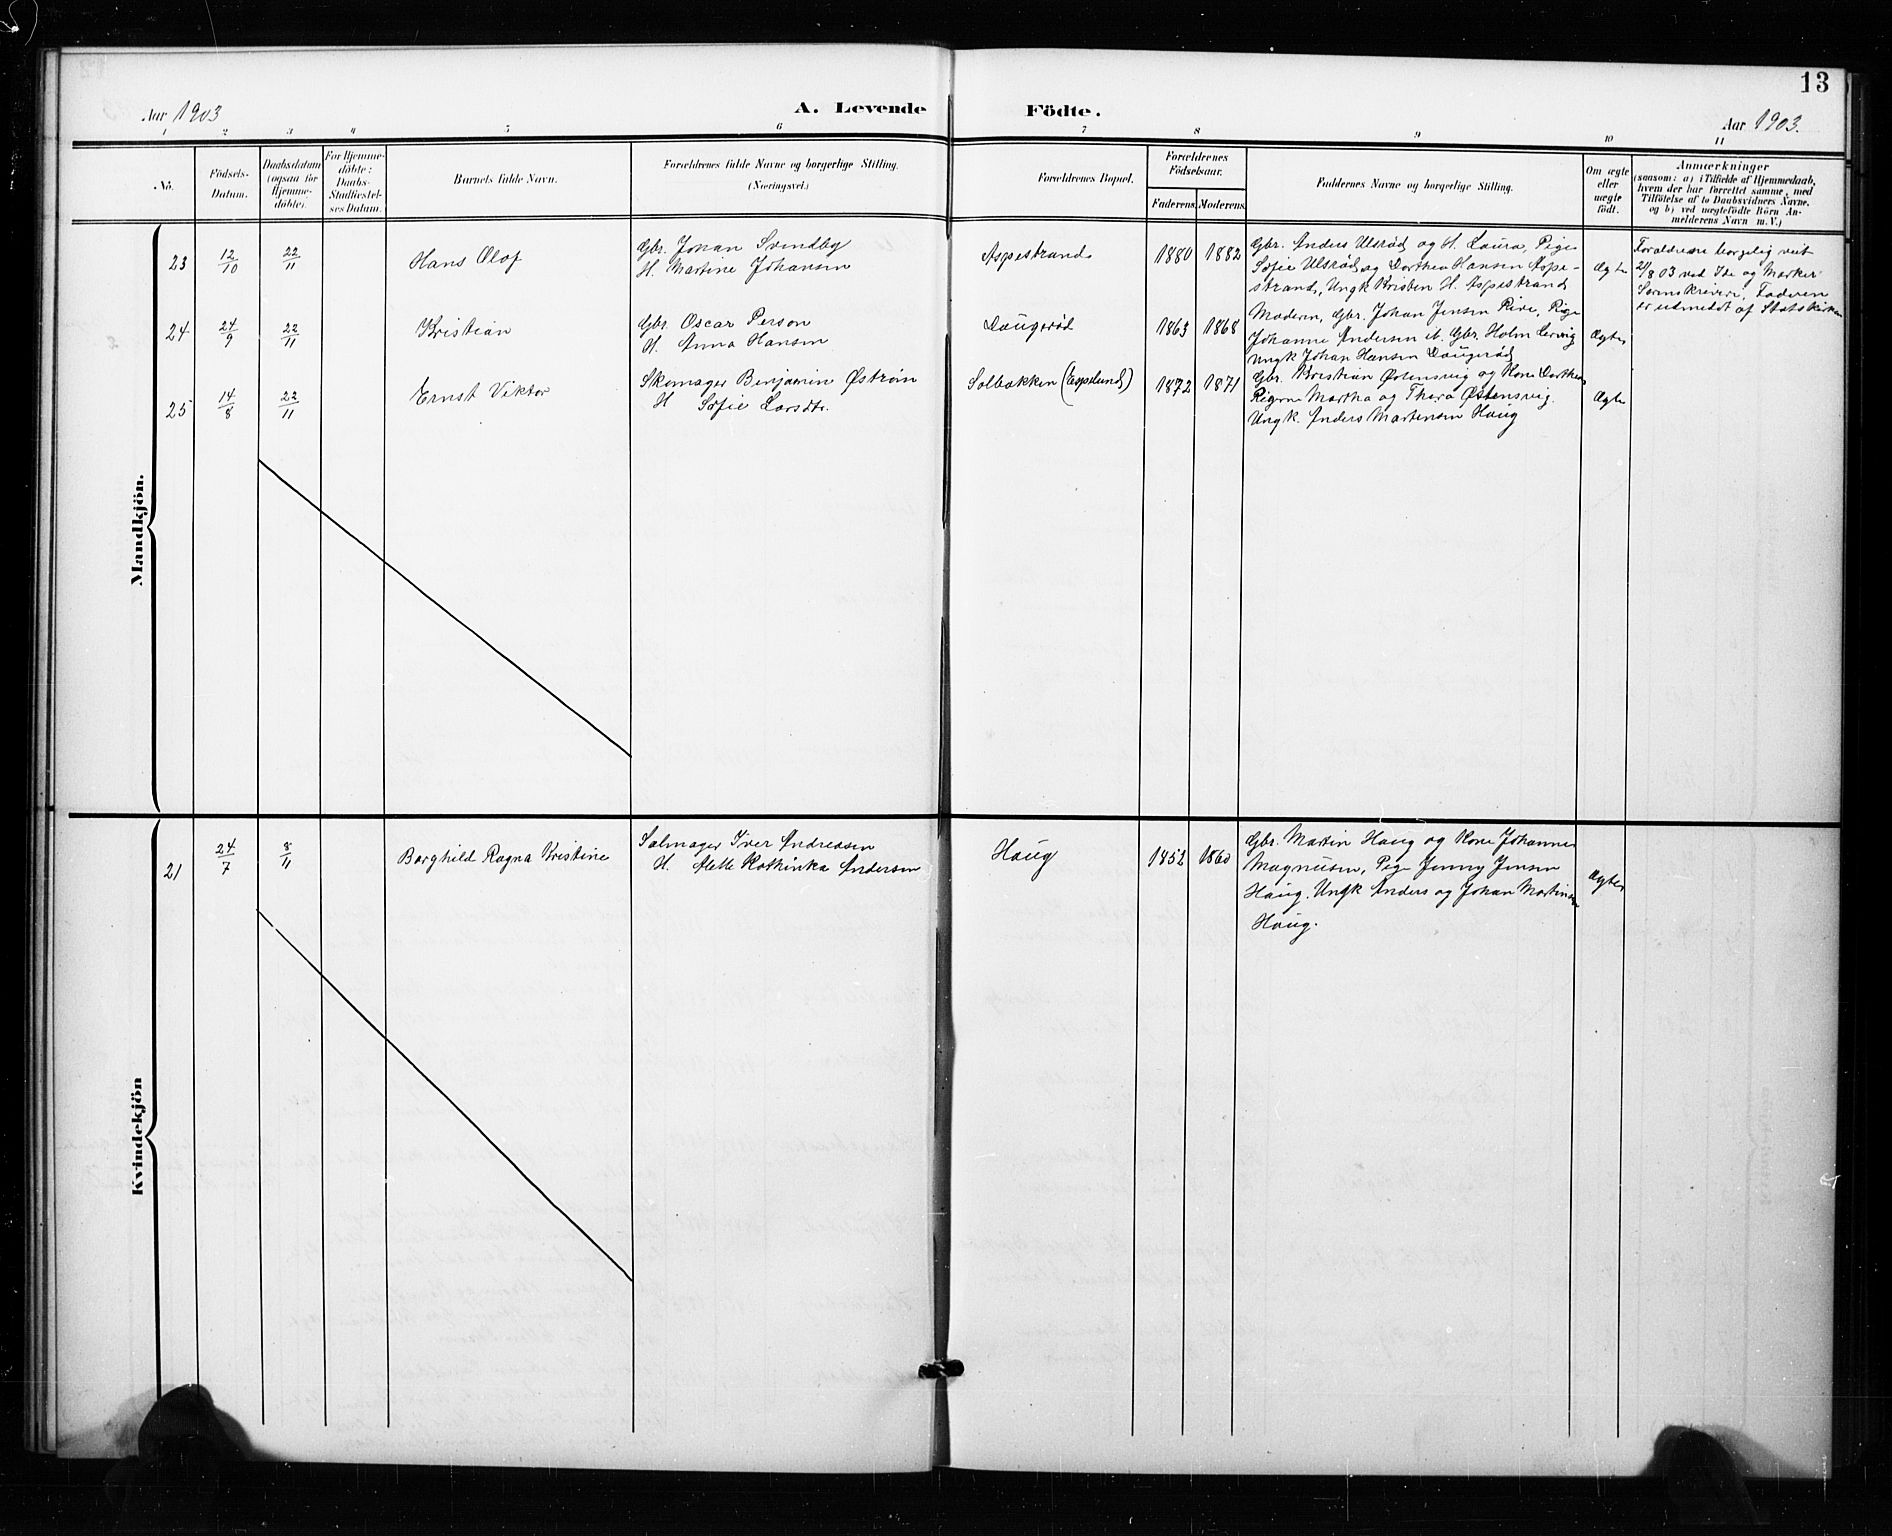 13
Aar 1903
A. Levende Födte.
Aar 1903.
1 2 3 4 5 6 7 8 9 10 11
No.
Födsels-
Datum.
Daabsdatum
(ogsaa for
Hjemme-
döbte).
For Hjemme-
döbte:
Daabs-
Stadfæstel-
ses Datum.
Barnets fulde Navn.
Forældrenes fulde Navne og borgerlige Stilling.
(Næringsvei.)
Forældrenes Bopæl.
Forældrenes
Födselsaar.
Faderens. Moderens.
Faddernes Navne og borgerlige Stilling.
Om ægte
eller
uægte
födt.
Anmærkninger
(saasom: a) i Tilfælde af Hjemmedaab,
hvem der har forrettet samme, med
Tilföielse af to Daabsvidners Navne,
og b) ved uægtefödte Börn An-
melderens Navn m. V.)
Mandkjön.
23
12/10
22/11
Hans Olof
Gbr. Johan Svendby
H. Martine Johansen
Aspestrand
1880 1882
Gbr. Anders Ulsrød og H. Laura, Pige
Sofie Ulsrød og Dorthea Hansen Aspe-
strand, Ungk Kristen H. Aspestrand
Ægte
Forældrene borgelig viet
21/8 03 ved Ide og Marker
Sorenskriveri. Faderen
er udmeldt af Statskirken
24
24/9
22/11
Kristian
Gbr. Oscar Person
H. Anna Hansen
Daugerød
1863 1868
Moderen, Gbr. Johan Jensen, Pige
Johanne Andersen Gbr. Holm
Ungk Johan Hansen Daugerød
Ægte
25
14/8
22/11
Ernst Viktor
Skomager Benjamin Østrøm
H. Sofie Larsdtr.
Solbakken (Espelund)
1872 1871
Gbr. Kristian Østensvig og Kone Dorthea
Pigerne Martha og Thora Østensvig.
Ungk. Anders Martensen Haug
Ægte
Kvindekjön
21
24/7
8/11
Borghild Ragna Kristine
Salmager Iver Andreasen
H. Alette Kathinka Andersen
Haug
1852 1860
Gbr. Martin Haug og Kone Johanne
Magnusen, Pige Jenny Jensen
Haug. Ungk Anders og Johan Martinsen
Haug.
Ægte